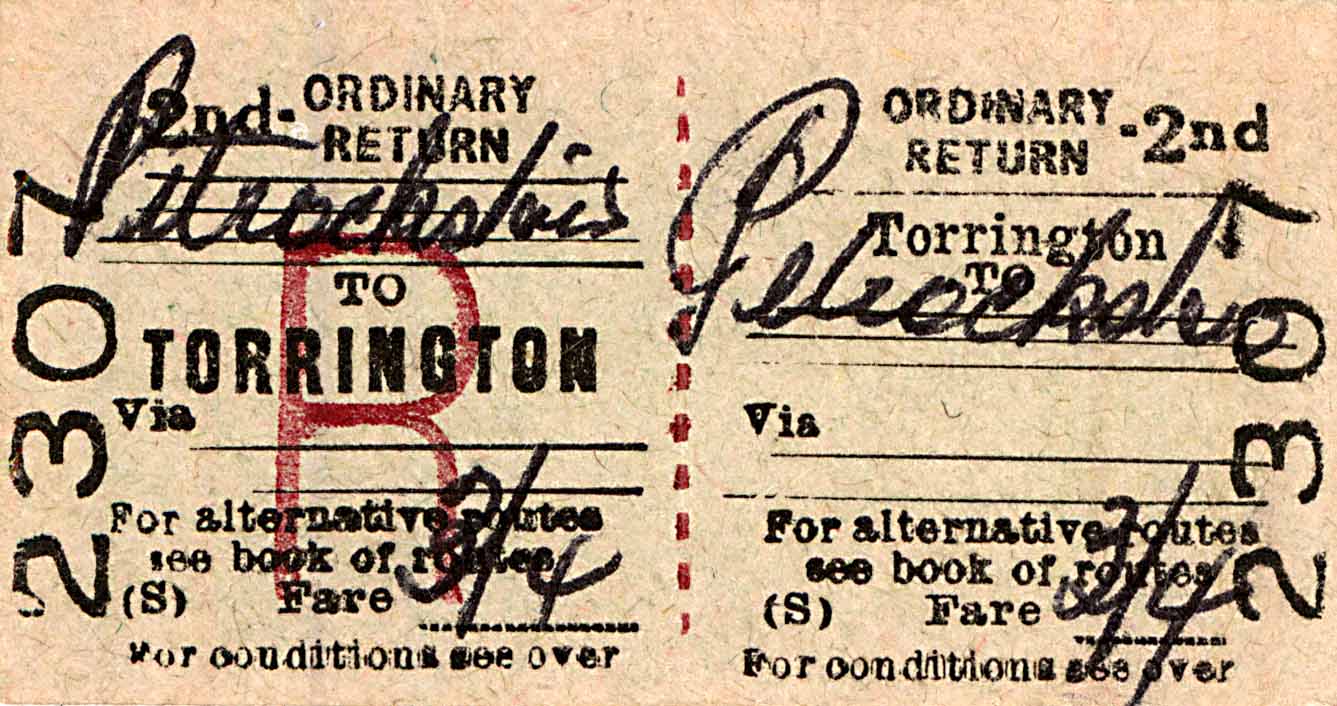 2nd- ORDINARY
RETURN
Petrockstow
TO
TORRINGTON
Via
For alternative routes
see book of routes
(S) Fare 2/4
For conditions see over
2307
R
ORDINARY -2nd
RETURN
Torrington
TO
Petrockstow
Via
For alternative routes
see book of routes
(S) Fare 2/4
For conditions see over
2307